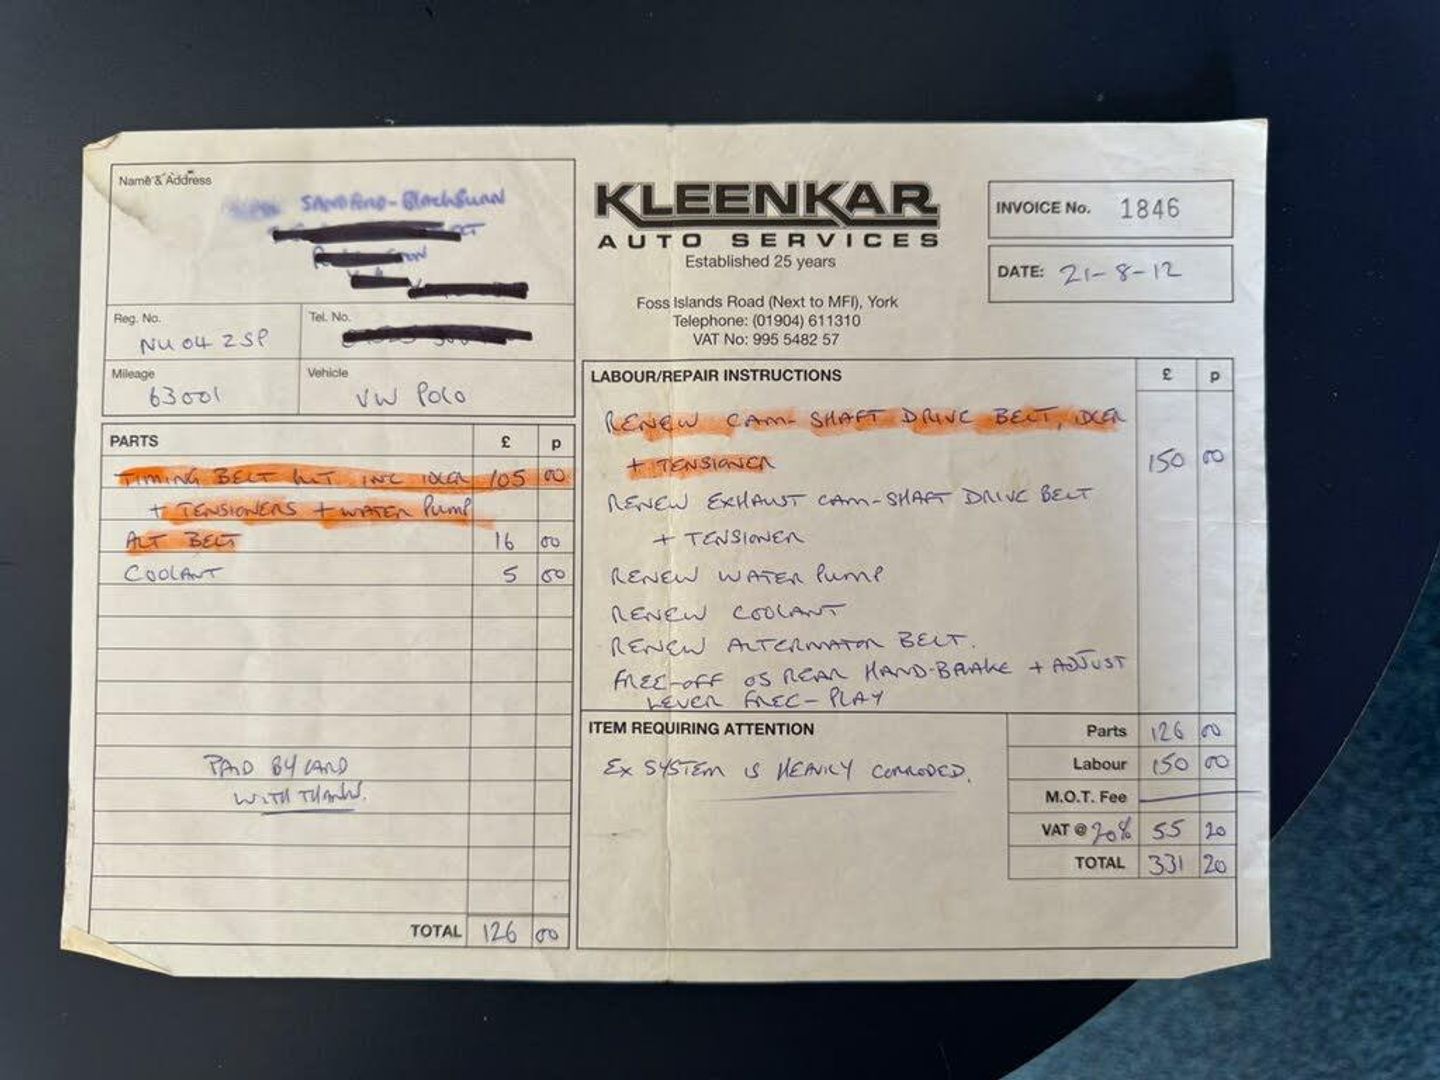 Name & Address
SANDFORD-BLACKBURN
KLEENKAR
AUTO SERVICES
Established 25 years
Foss Islands Road (Next to MFI), York
Telephone: (01904) 611310
VAT No: 995 5482 57
INVOICE No. 1846
DATE: 21-8-12
Reg. No.
NU04 ZSP
Tel. No.
Mileage
63001
Vehicle
VW POLO
PARTS £ p
TIMING BELT KIT INC IDLER 105 00
+ TENSIONERS + WATER PUMP
ALT BELT 16 00
COOLANT 5 00
PAID BY CARD
WITH THANKS.
TOTAL 126 00
LABOUR/REPAIR INSTRUCTIONS £ p
RENEW CAM-SHAFT DRIVE BELT, IDLER
+ TENSIONER 150 00
RENEW EXHAUST CAM-SHAFT DRIVE BELT
+ TENSIONER
RENEW WATER PUMP
RENEW COOLANT
RENEW ALTERNATOR BELT.
FREE-OFF OS REAR HAND-BRAKE + ADJUST
LEVER FREE-PLAY
ITEM REQUIRING ATTENTION
EX SYSTEM IS HEAVILY CORRODED.
Parts 126 00
Labour 150 00
M.O.T. Fee
VAT @ 20% 55 20
TOTAL 331 20